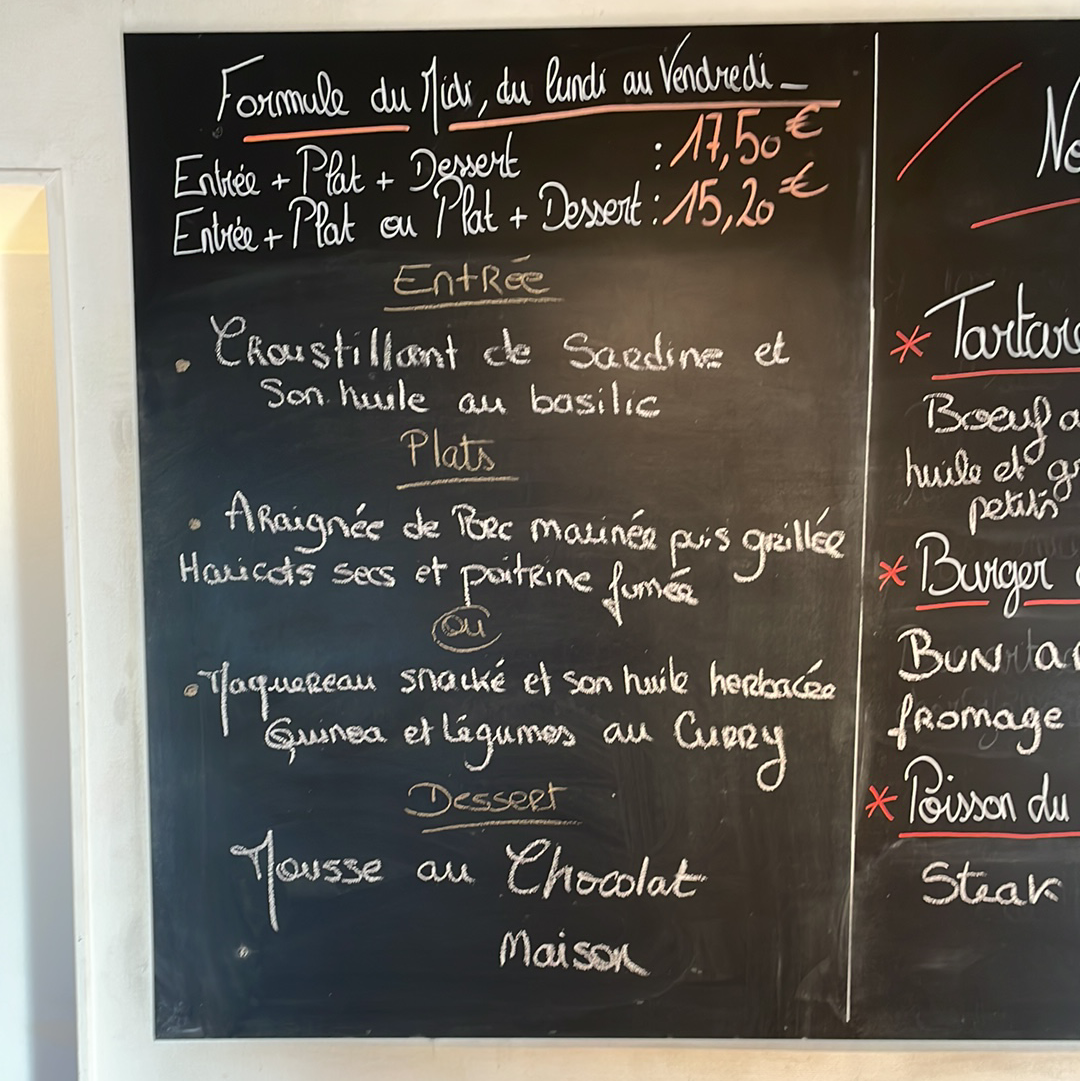 Formule du Midi, du lundi au Vendredi_
Entrée + Plat + Dessert : 17,50 €
Entrée + Plat ou Plat + Dessert : 15,20 €
Entrée
• Croustillant de Sardine et
Son huile au basilic
Plats
• Araignée de Porc marinée puis grillée
Haricots secs et poitrine fumée
ou
• Maquereau snacké et son huile herbacée
Quinoa et légumes au Curry
Dessert
Mousse au Chocolat
Maison
* Tartare
Boeuf
huile et
petits
* Burger
BUN
fromage
* Poisson du
Steak